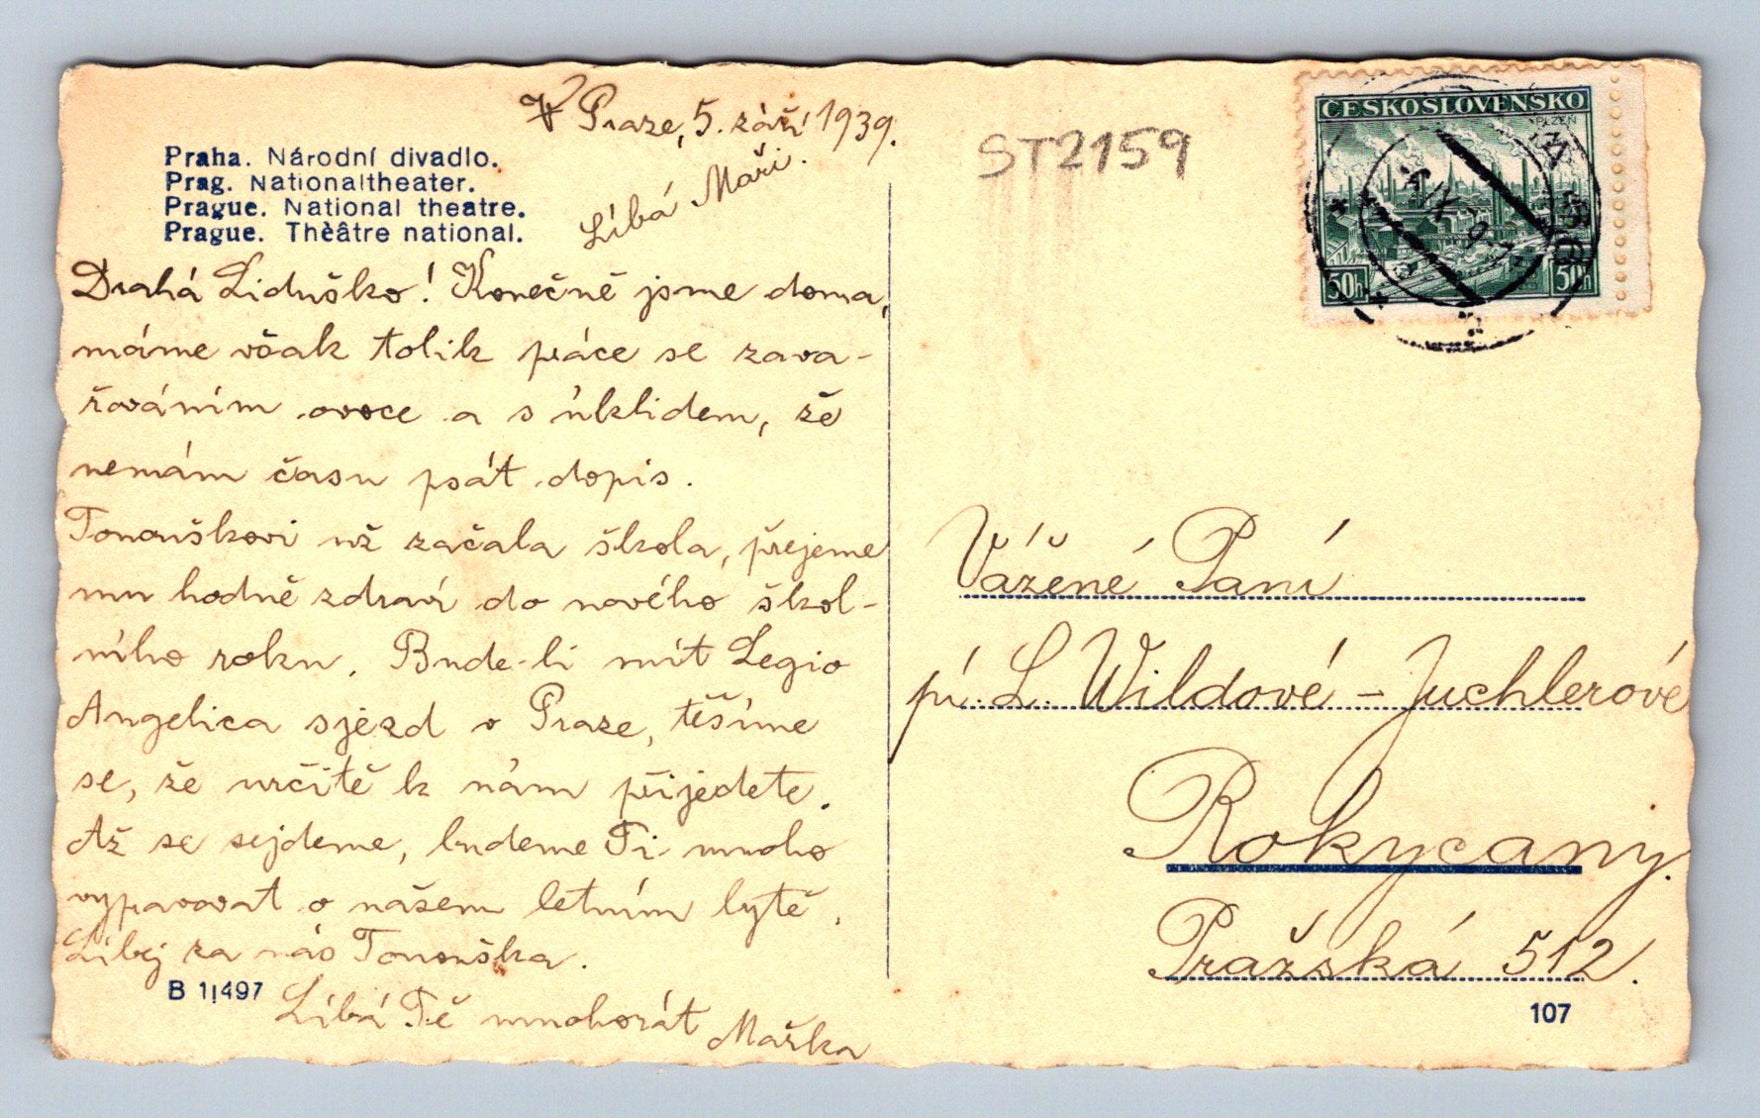 V Praze, 5. září 1939.
Líbá Maři.
Praha. Národní divadlo.
Prag. Nationaltheater.
Prague. National theatre.
Prague. Thèâtre national.
Drahá Liduško! Konečně jsme doma,
máme však tolik práce se zava-
řováním ovoce a s úklidem, že
nemám času psát dopis.
Tonouškovi už začala škola, přejeme
mu hodně zdraví do nového škol-
ního roku. Bude-li mít Legio
Angelica sjezd v Praze, těšíme
se, že určitě k nám přijedete.
Až se sejdeme, budeme Ti mnoho
vypravovat o našem letním bytě.
Líbej za nás Tonouška.
Líbá Tě mnohorát Mařka
B 1|497
ST2159
ČESKOSLOVENSKO
PLZEŇ
50h
50h
Vážené Paní
pí. L. Wildové - Juchlerové
Rokycany.
Pražská 512.
107